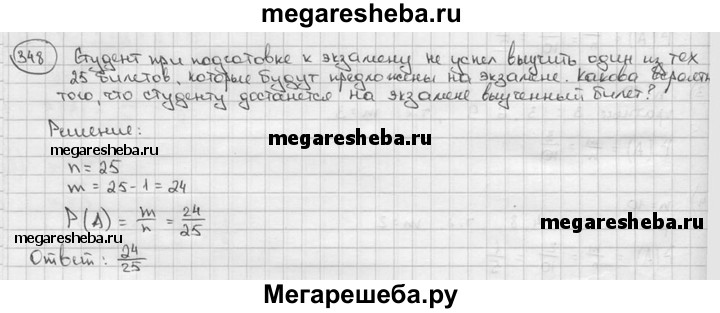 megaresheba.ru
348 Студент при подготовке к экзамену не успел выучить один из тех
25 билетов, которые будут предложены на экзамене. Какова
того, что студенту достанется на экзамене выученный билет?
Решение:
megaresheba.ru
megaresheba.ru
n = 25
m = 25 - 1 = 24
P(A) = m/n = 24/25
megaresheba.ru
megaresheba.ru
Ответ: 24/25
Мегарешеба.ру